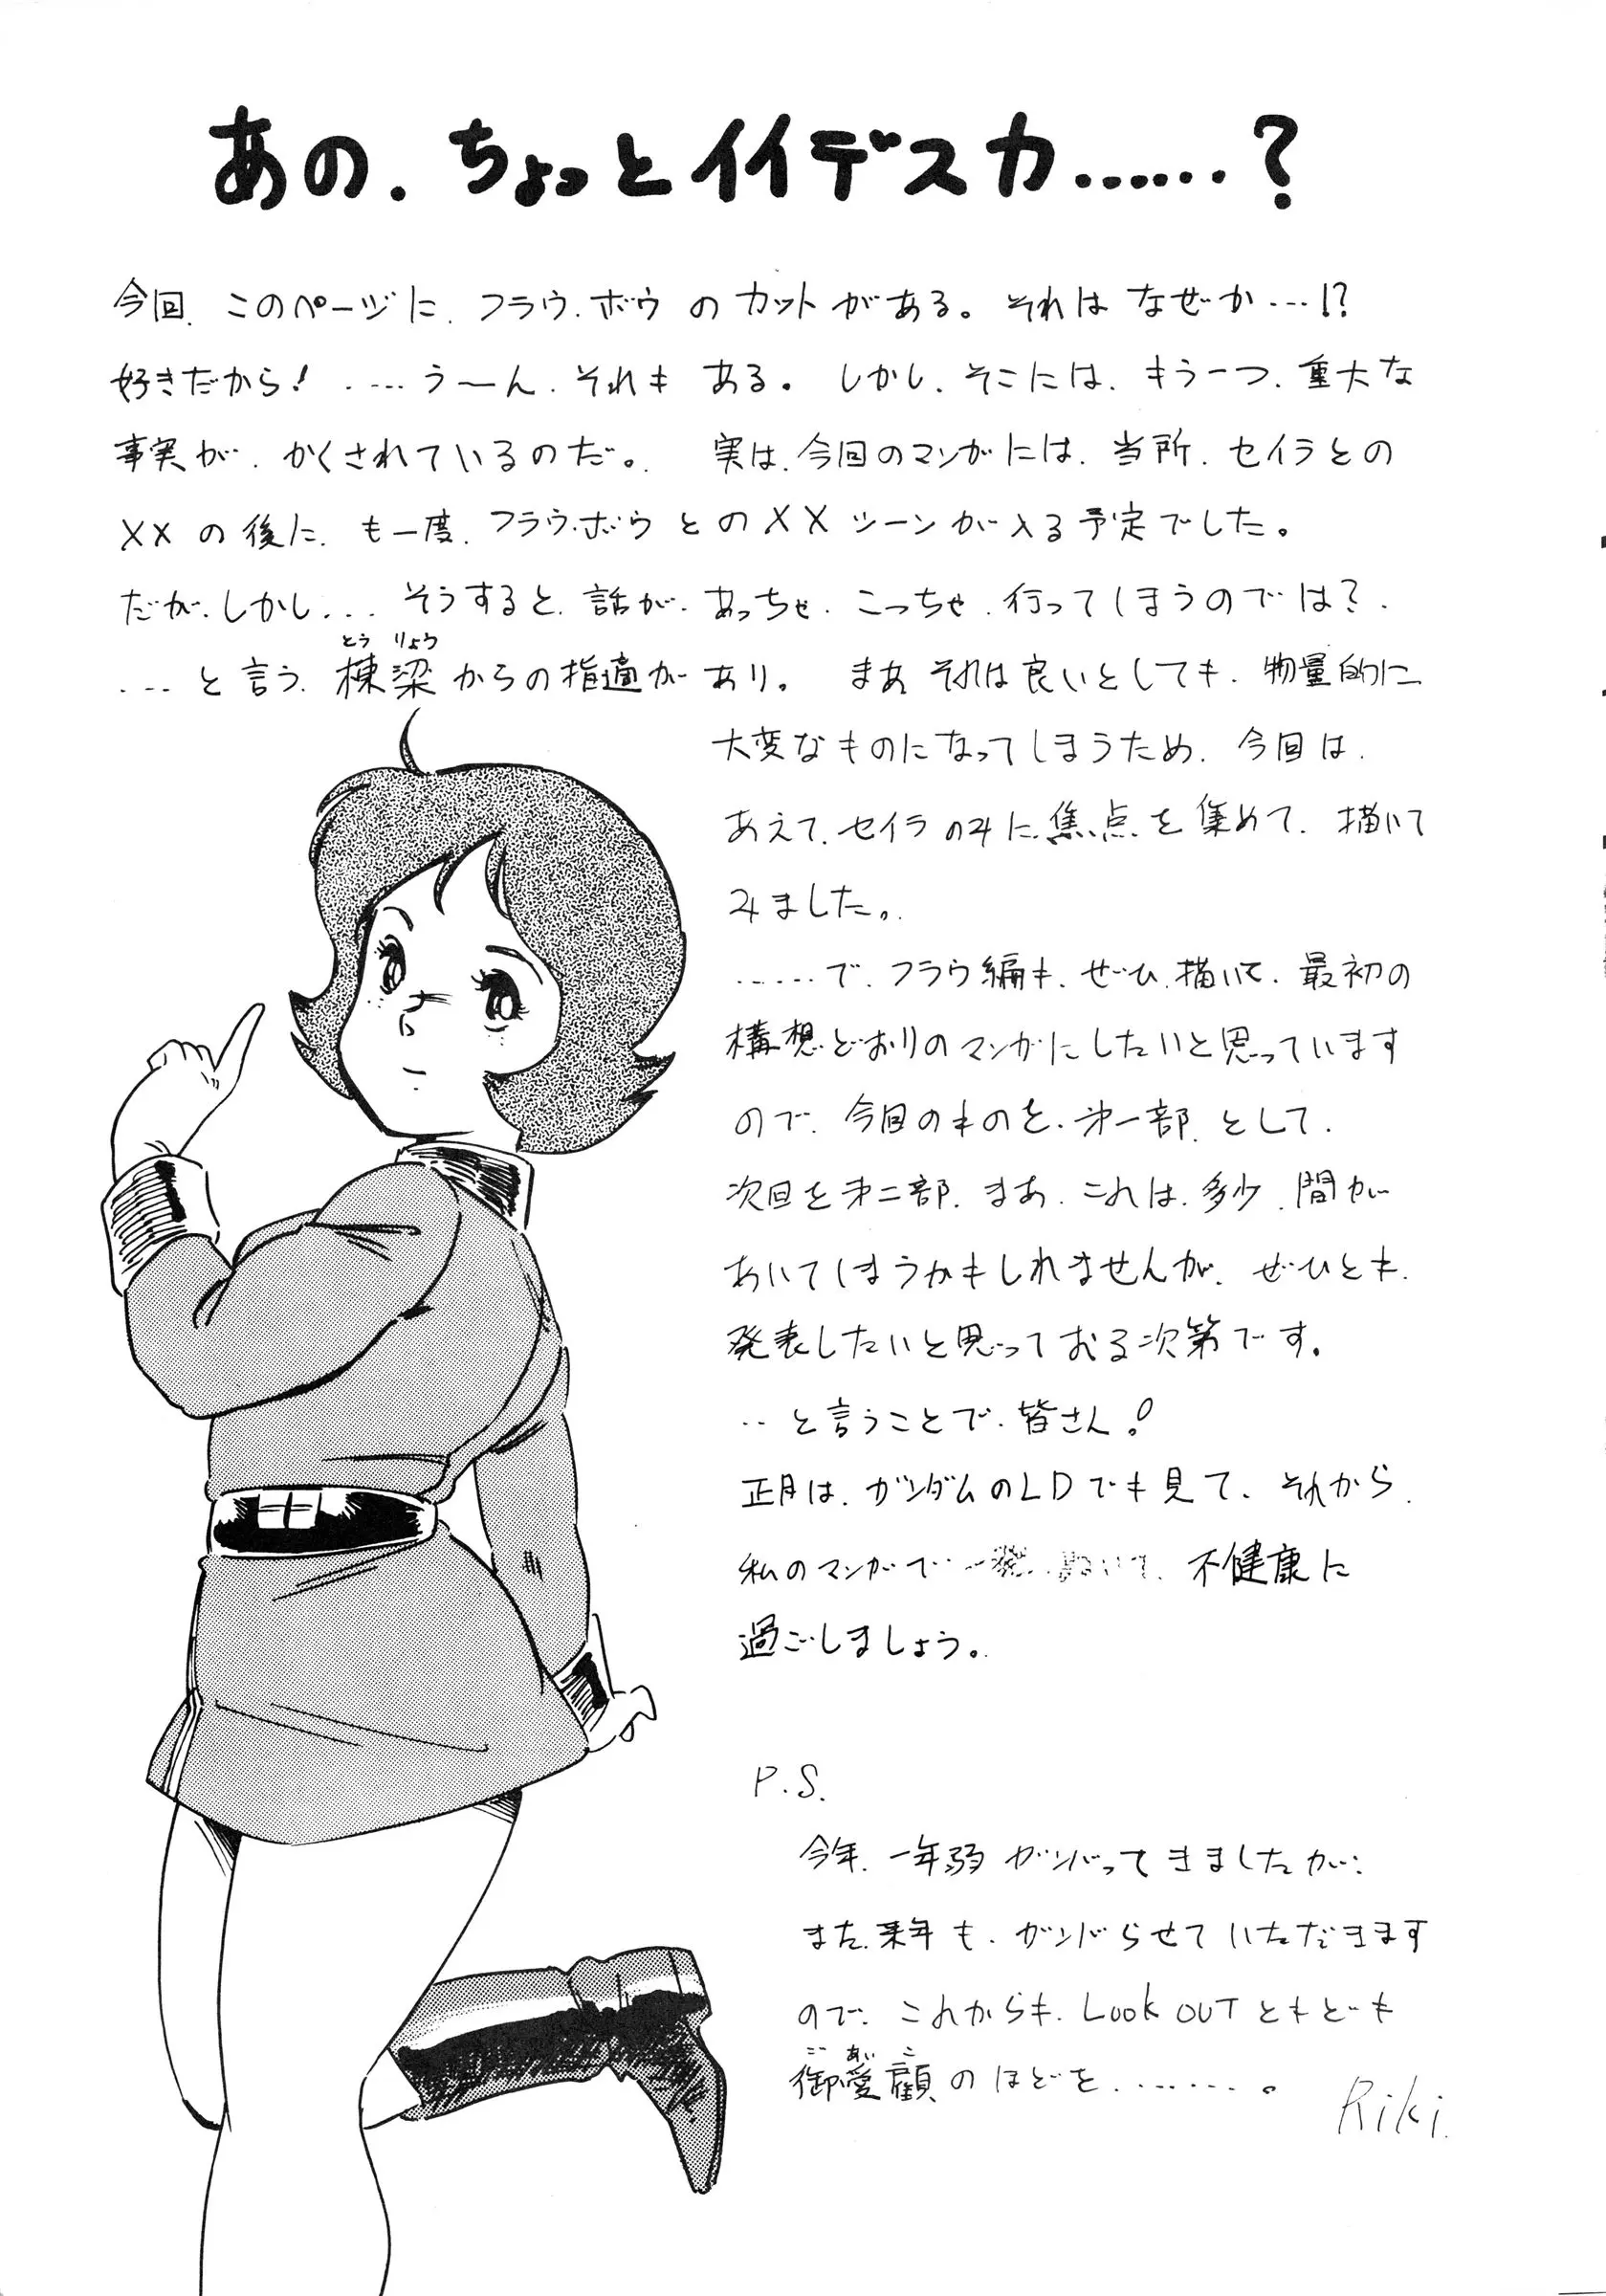 あの、ちょっとイイデスカ……?
今回、このページに、フラウ・ボウのカットがある。それはなぜか…!?
好きだから! ……うーん、それもある。しかし、そこには、もう一つ、重大な
事実が、かくされているのだ。 実は、今回のマンガには、当所、セイラとの
XXの後に、も一度、フラウ・ボウとのXXシーンが入る予定でした。
だが、しかし… そうすると、話が、あっちゃ、こっちゃ、行ってしまうのでは?
とうりょう
…と言う、棟梁からの指適があり。 まあ、それは良いとしても、物量的に
大変なものになってしまうため、今回は、
あえて、セイラのみに焦点を集めて、描いて
みました。
……で、フラウ編も、ぜひ描いて、最初の
構想どおりのマンガにしたいと思っています
ので、今回のものを、オ一部、として、
次回をオ二部、まあ、これは、多少、間が
あいてしまうかもしれませんが、ぜひとも、
発表したいと思っておる次第です。
‥と言うことで、皆さん!
正月は、ガンダムのLDでも見て、それから、
私のマンガで 一発 不健康に
過ごしましょう。
P.S.
今年、一年弱ガンバってきましたが、
また来年も、ガンバらせていただきます
ので、これからも、Look OUTともども
ごあいこ
御愛顧のほどを………。
Riki.